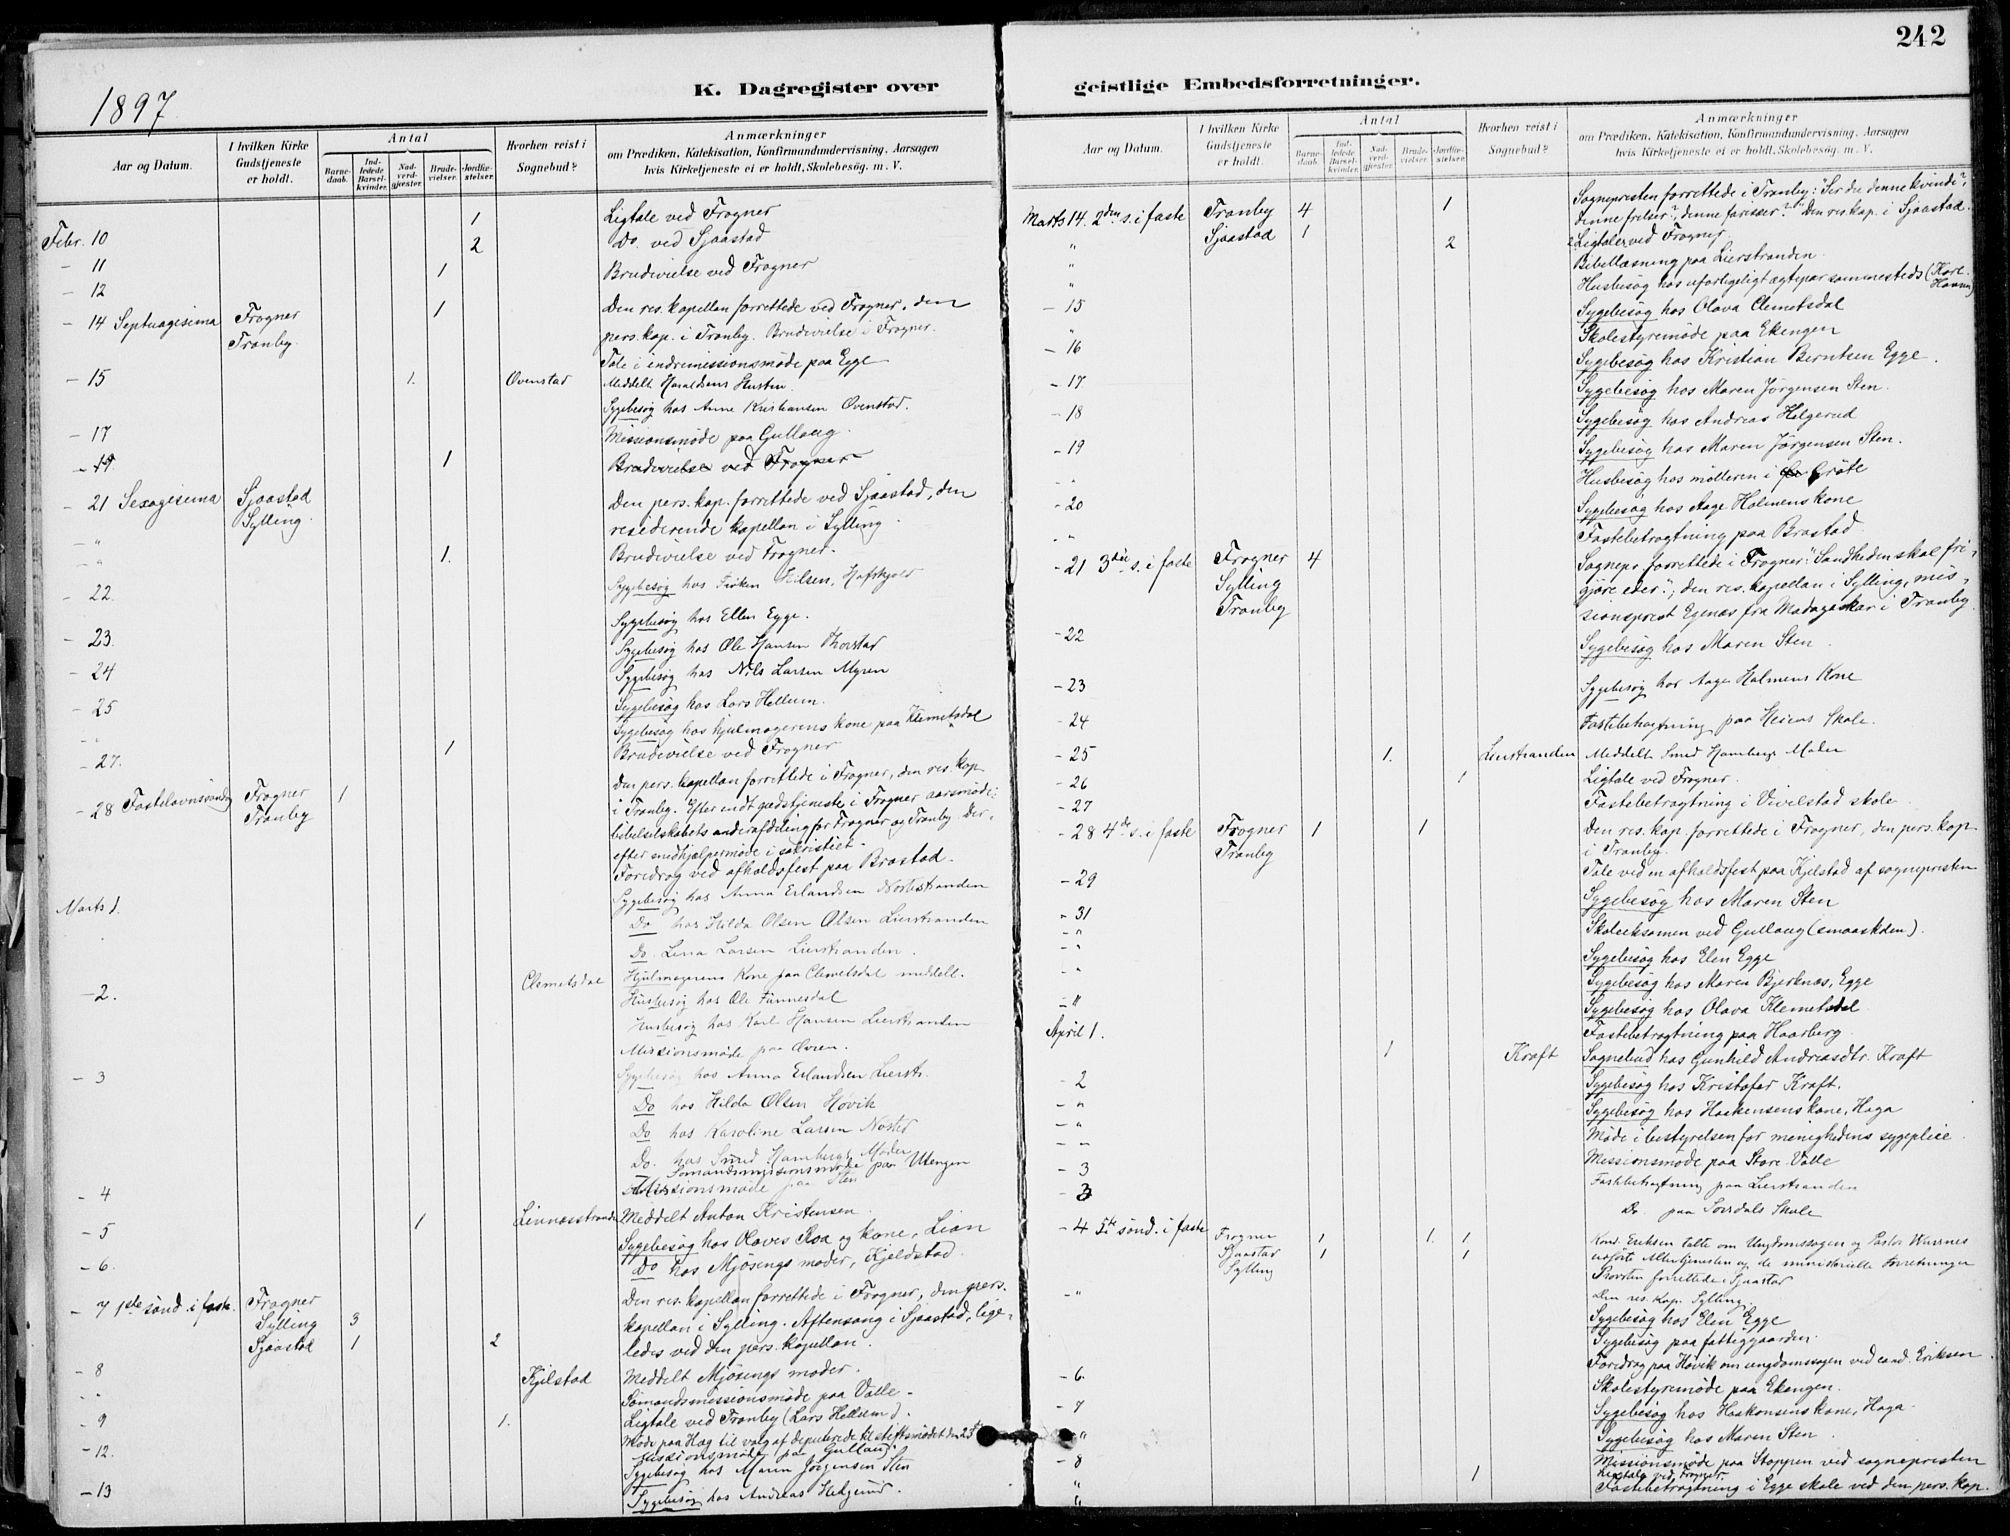 242
K. Dagregister over
geistlige Embedsforretninger.
1897
Aar og Datum.
I hvilken Kirke Gudstjeneste er holdt.
Antal
Barnedaab.
Indledede Barselkvinder.
Nadverdgjæster.
Brudevielser.
Jordfæstelser.
Hvorhen reist i Sognebud?
Anmærkninger
om Prædiken, Katekisation, Konfirmandundervisning, Aarsagen
hvis Kirketjeneste ei er holdt, Skolebesøg, m. V.
Febr. 10 1 Ligtale ved Frogner
2 Do. ved Sjaastad
- 11 1 Brudevielse ved Frogner
- 12
- 14 Septuagesima Frogner 1 Den res. kapellan forrettede ved Frogner, den
Tranby. pers. kap. i Tranby. Brudevielse i Frogner.
Tale i indremissionsmøde paa Egge
- 15 1. Ovenstad Meddelt Haraldsens Hustru.
Sygebesøg hos Anne Kristiansen Ovenstad.
- 17 Missionsmøde paa Gullaug.
- 19. 1 Brudevielse ved Frogner
- 21 Sexagesima Sjaastad Den pers. kap. forrettede ved Sjaastad, den
Sylling. residerende kapellan i Sylling.
- " 1. Brudevielse ved Frogner.
- 22. Sygebesøg hos
Sygebesøg hos Ellen Egge.
- 23. Sygebesøg hos Ole Hansen Thorstad
- 24 Sygebesøg hos Nils Larsen Myren
- 25 Sygebesøg hos Lars Hellum.
Sygebesøg hos hjulmagerens kone paa Klemetsdal
- 27. 1 Brudevielse ved Frogner
- 28 Fastelavnssøndag Frogner 1 Den pers. kapellan forrettede i Frogner, den res. kap.
Tranby i Tranby. Efter endt gudstjeneste i Frogner aarsmøde i
bibelselskabets underafdeling for Frogner og Tranby. Der-
efter medhjælpermøde i sakristiet.
Foredrag ved afholdsfest paa Brastad.
Marts 1. Sygebesøg hos Anna Erlandsen Nostestranden
Do hos Hilda Olsen Olsen Lierstranden
Do. Lina Larsen Lierstranden.
- 2. Clemetsdal Hjulmagerens Kone paa Clemetsdal meddelt.
Husbesøg hos Ole Finnesdal
Husbesøg hos Karl Hansen Lierstranden
Missionsmøde paa Øvren.
- 3 Sygebesøg hos Anna Erlandsen Lierstr.
Do hos Hilda Olsen Høvik
Do hos Karoline Larsen Nøsted
Do. hos Smed Hambergs Moder
Sømandsmissionsmøde paa Utengen
- 4 Missionsmøde paa Sten
- 5 1 Linnæsstranden Meddelt Anton Kristensen.
Sygebesøg hos Olaves Roa og kone, Lian
- 6. Do hos Mjøsings moder, Kjeldstad.
- 7 1ste sønd. i faste. Frogner Den res. kapellan forrettede i Frogner, den pers.
Sylling 3 kapellan i Sylling. Aftensang i Sjaastad, lige-
Sjaastad 1 2 ledes ved den pers. kapellan.
- 8 Kjelstad Meddelt Mjøsings moder.
- " Sømandsmissionsmøde paa Valle.
- 9 1. Ligtale ved Tranby (Lars Hellum).
Møde paa Hæg til valg af deputerede til stiftsmødet den 25de
- 12. Missionsmøde paa Gullaug.
Sygebesøg hos Maren Jørgensen Sten
- 13 Sygebesøg hos Andreas Helgerud.
Aar og Datum.
I hvilken Kirke Gudstjeneste er holdt.
Antal
Barnedaab.
Indledede Barselkvinder.
Nadverdgjæster.
Brudevielser.
Jordfæstelser.
Hvorhen reist i Sognebud?
Anmærkninger
om Prædiken, Katekisation, Konfirmandundervisning, Aarsagen
hvis Kirketjeneste ei er holdt, Skolebesøg, m. V.
Sognepresten forrettede i Tranby: "Ser du denne kvinde?,
Marts 14. 2den s. i faste Tranby 4 1 denne frelser?, denne farisæer?" Den res. kap. i Sjaastad.
" Sjaastad 1 2 2 Ligtaler ved Frogner.
" Bibellæsning paa Lierstranden.
" Husbesøg hos uforligeligt ægtepar sammesteds (Karl Hansen)
- 15 Sygebesøg hos Olava Clemetsdal
" Skolestyremøde paa Ekengen
- 16 Sygebesøg hos Kristian Berntsen Egge.
- 17 Sygebesøg hos Maren Jørgensen Sten.
- 18 Sygebesøg hos Andreas Helgerud
- 19 Sygebesøg hos Maren Jørgensen Sten.
Husbesøg hos mølleren i Grøte
- 20 Sygebesøg hos Aage Holmens kone
" Fastebetragtning paa Brastad
- 21 3die s. i faste Frogner 4 Sognepr. forrettede i Frogner: "Sandheden skal fri-
Sylling gjøre eder."; den res. kapellan i Sylling, mis-
Tranby sionsprest Egenæs fra Madagaskar i Tranby.
- 22 Sygebesøg hos Maren Sten.
- 23 Sygebesøg hos Aage Holmens Kone
- 24 Fastebetragtning paa Heiens Skole.
- 25 1. Lierstranden Meddelt Smed Hambergs Moder
- 26 1 Ligtale ved Frogner.
- 27 Fastebetragtning i Vivelstad skole
- 28 4de s. i faste Frogner 1 1 Den res. kap. forrettede i Frogner, den pers. kap.
Tranby i Tranby.
- 29 Tale ved en afholdsfest paa Kjelstad af sognepresten
- 31 Sygebesøg hos Maren Sten
- " Skoleeksamen ved Gullaug (smaaskolen).
- " Sygebesøg hos Elen Egge
" Sygebesøg hos Maren Bjerknæs, Egge
- " Sygebesøg hos Olava Klemetsdal
April 1. Fastebetragtning paa Haarberg.
1 Kraft Sognebud hos Gunhild Andreasdtr. Kraft
- 2 Sygebesøg hos Kristofer Kraft.
- " Sygebesøg hos Haakensens kone, Haga
- " Møde i bestyrelsen for menighedens sygepleie.
- 3 Missionsmøde paa Store Valle
- 3 Fastebetragtning paa Lierstranden
Do. paa Sørsdals Skole
- 4 5te sønd. i faste Frogner 1 1. 1 Kand. Eriksen talte om Ungdomssagen og Pastor
Sjaastad 1 1 udførte Altertjenesten og de ministerielle Forretninger
Sylling forrettede i Sjaastad
- " den res. Kap. Sylling.
Sygebesøg hos Elen Egge
Sygebesøg paa fattiggaarden.
Foredrag paa Høvik om ungdomssagen ved cand. Eriksen.
- 6. Skolestyremøde paa Ekengen.
- 7 Sygebesøg hos Haakonsens kone, Haga.
- " Sygebesøg hos Maren Sten.
- 8 Missionsmøde paa Stoppen ved sognepresten
" 1 Ligtale ved Frogner.
" Fastebetragtning i Egge skole ved den pers. kap.